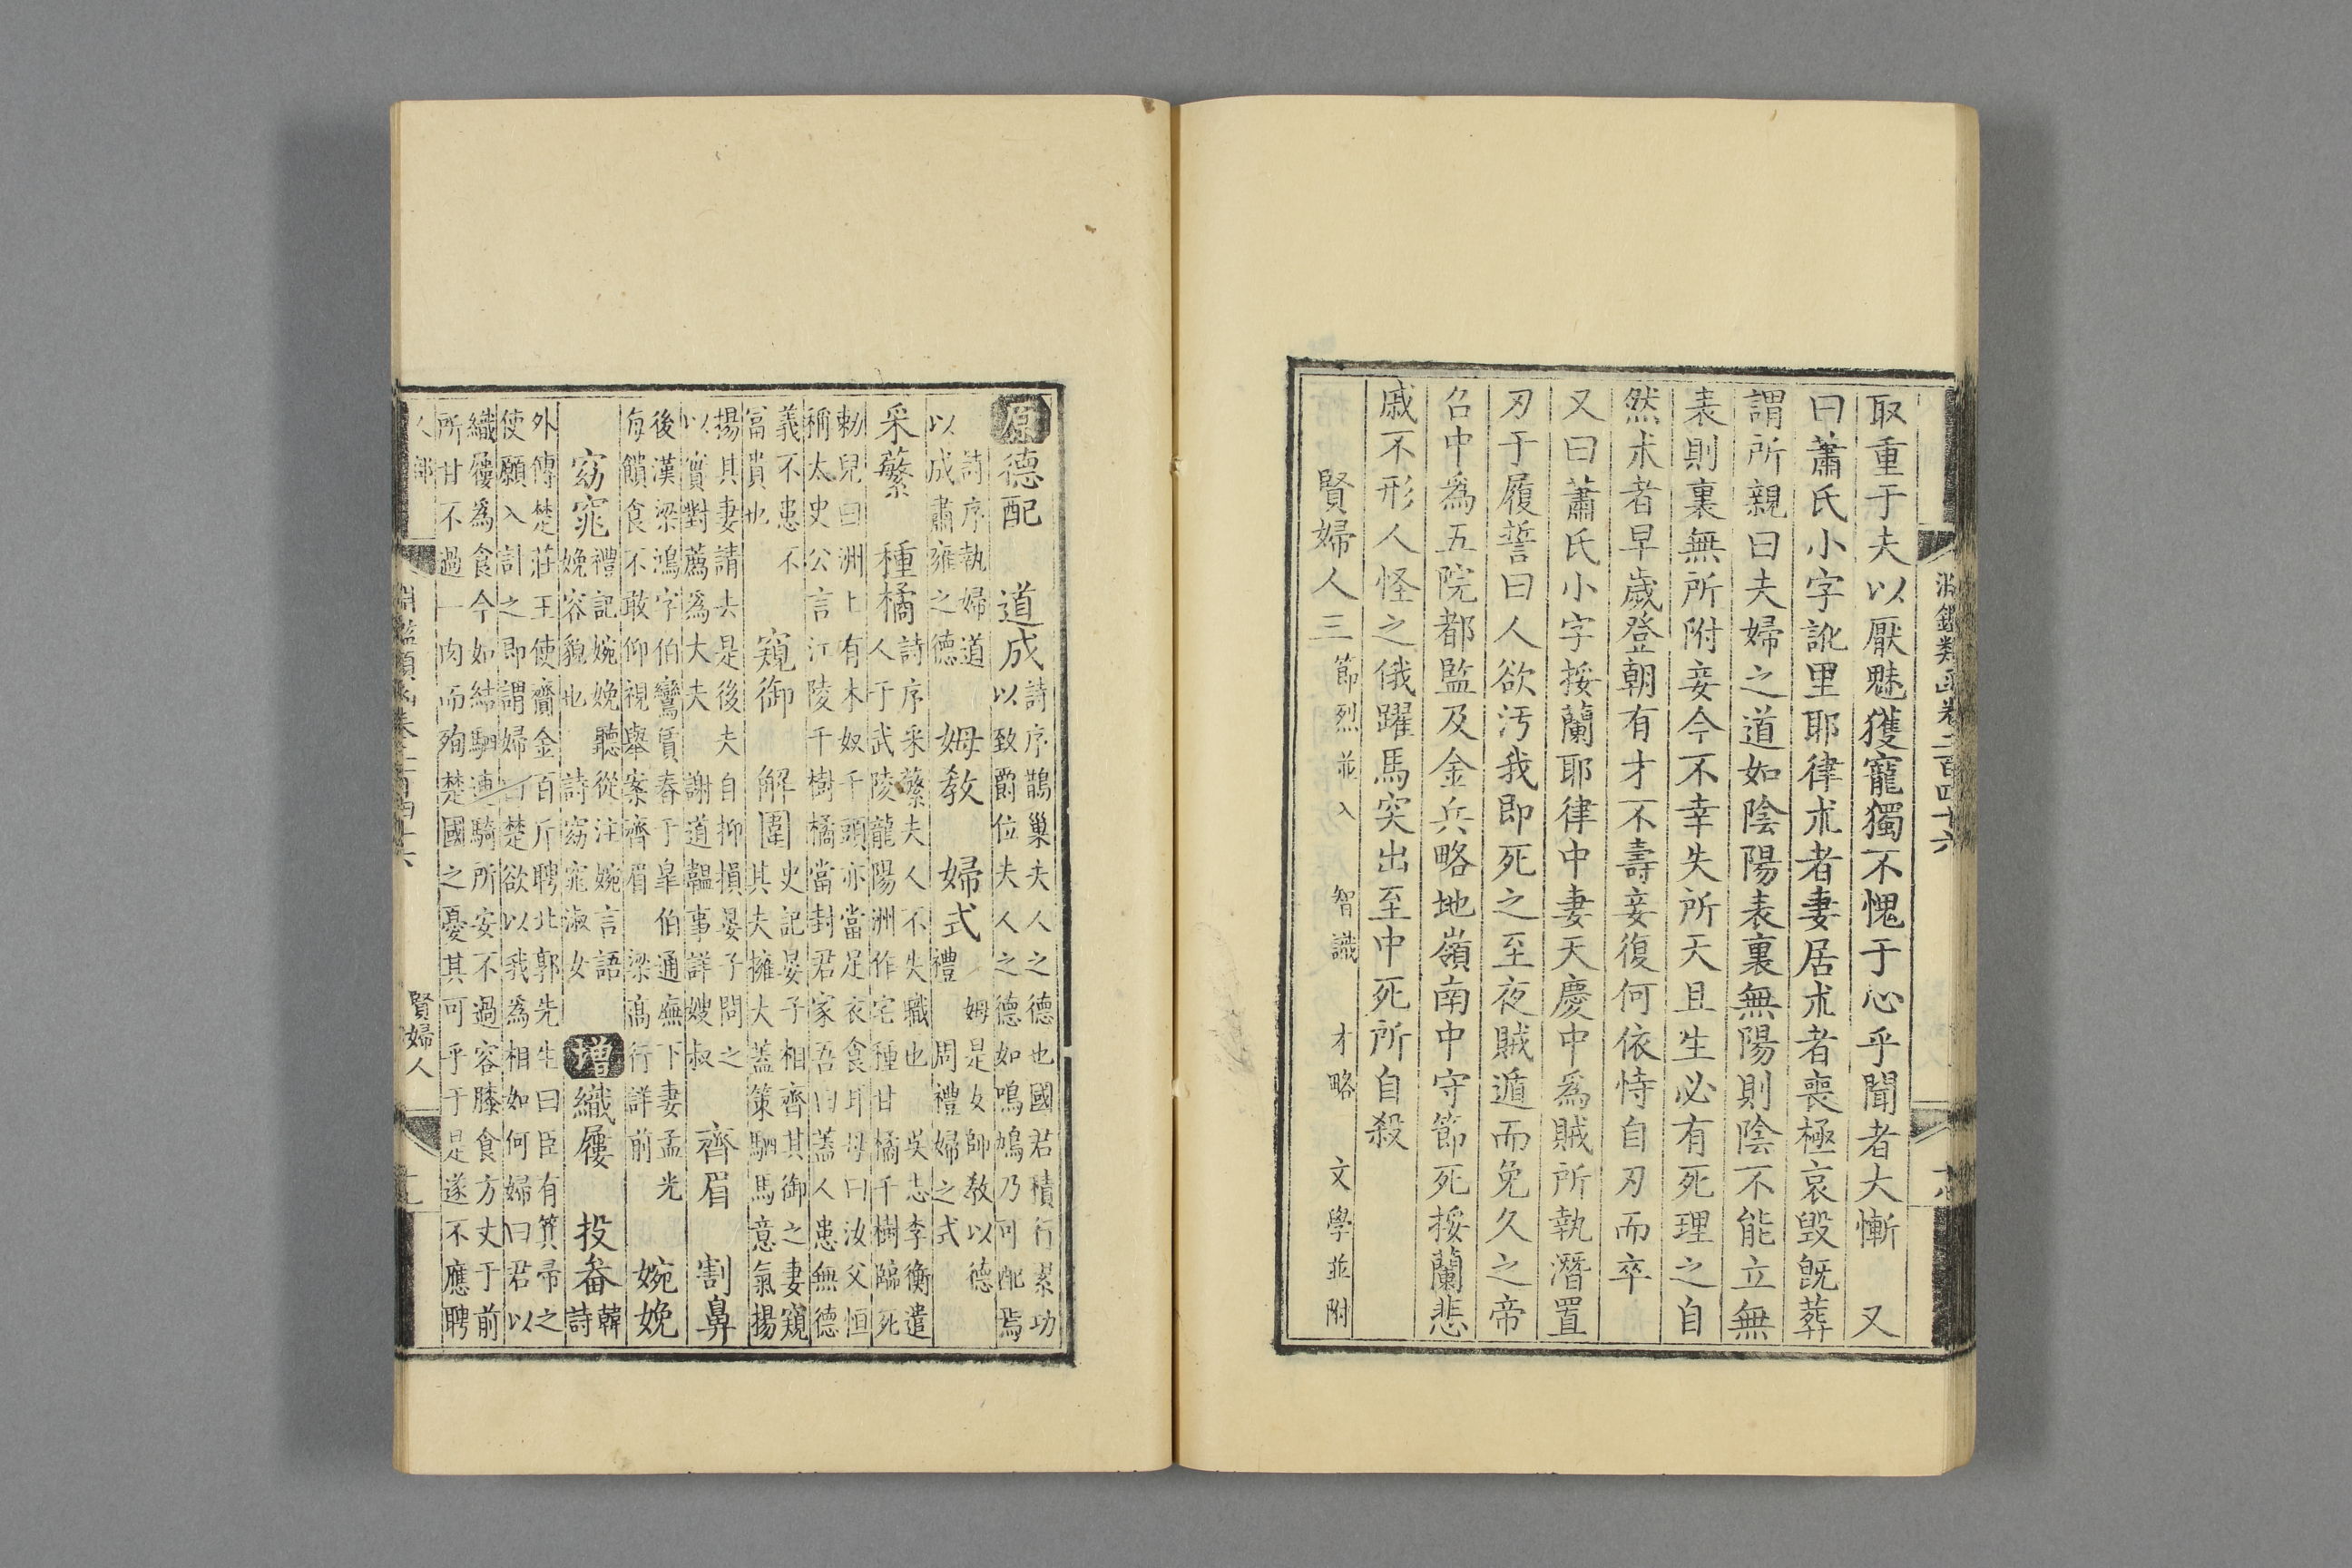 淵鑑類函卷二百四十六
取重于夫以厭魅獲寵獨不愧于心乎聞者大慚　又
曰蕭氏小字訛里耶律朮者妻居朮者喪極哀毀既葬
謂所親曰夫婦之道如陰陽表裏無陽則陰不能立無
表則裏無所附妾今不幸失所天且生必有死理之自
然朮者早歲登朝有才不壽妾復何依恃自刃而卒
又曰蕭氏小字挼蘭耶律中妻天慶中為賊所執潛置
刃于履誓曰人欲汚我即死之至夜賊遁而免久之帝
召中為五院都監及金兵略地嶺南中守節死挼蘭悲
戚不形人怪之俄躍馬突出至中死所自殺
賢婦人三 節烈並入　智識　才略　文學並附
原德配　道成 詩序鵲巢夫人之德也國君積行累功
以致爵位夫人之德如鳴鳩乃可配焉
姆教　婦式 禮姆是女師教以德
周禮婦之式
詩序執婦道
以成肅雍之德
采蘩　種橘 詩序采蘩夫人不失職也 吳志李衡遣
人于武陵龍陽洲作宅種甘橘千樹臨死
勅兒曰洲上有木奴千頭亦當足衣食耳母曰汝父恒
稱太史公言江陵千樹橘當封君家吾曰蓋人患無德
義不患不
富貴也
窺御　解圍 史記晏子相齊其御之妻窺
其夫擁大蓋策駟馬意氣揚
揚其妻請去是後夫自抑損晏子問之
以實對薦為大夫 謝道韞事詳嫂叔
齊眉　割鼻
後漢梁鴻字伯鸞賃舂于臯伯通廡下妻孟光
每饋食不敢仰視舉案齊眉 梁高行詳前
婉娩
窈窕 禮記婉娩聽從注婉言語
娩容貌也 詩窈窕淑女
增織屨　投畚 韓
詩
外傳楚莊王使齎金百斤聘北郭先生曰臣有箕帚之
使願入計之即謂婦曰楚欲以我為相如何婦曰君以
織屨為食今如結駟連騎所安不過容膝食方丈于前
所甘不過一肉而殉楚國之憂其可乎于是遂不應聘
人部
淵鑑類函卷二百四十六
賢婦人